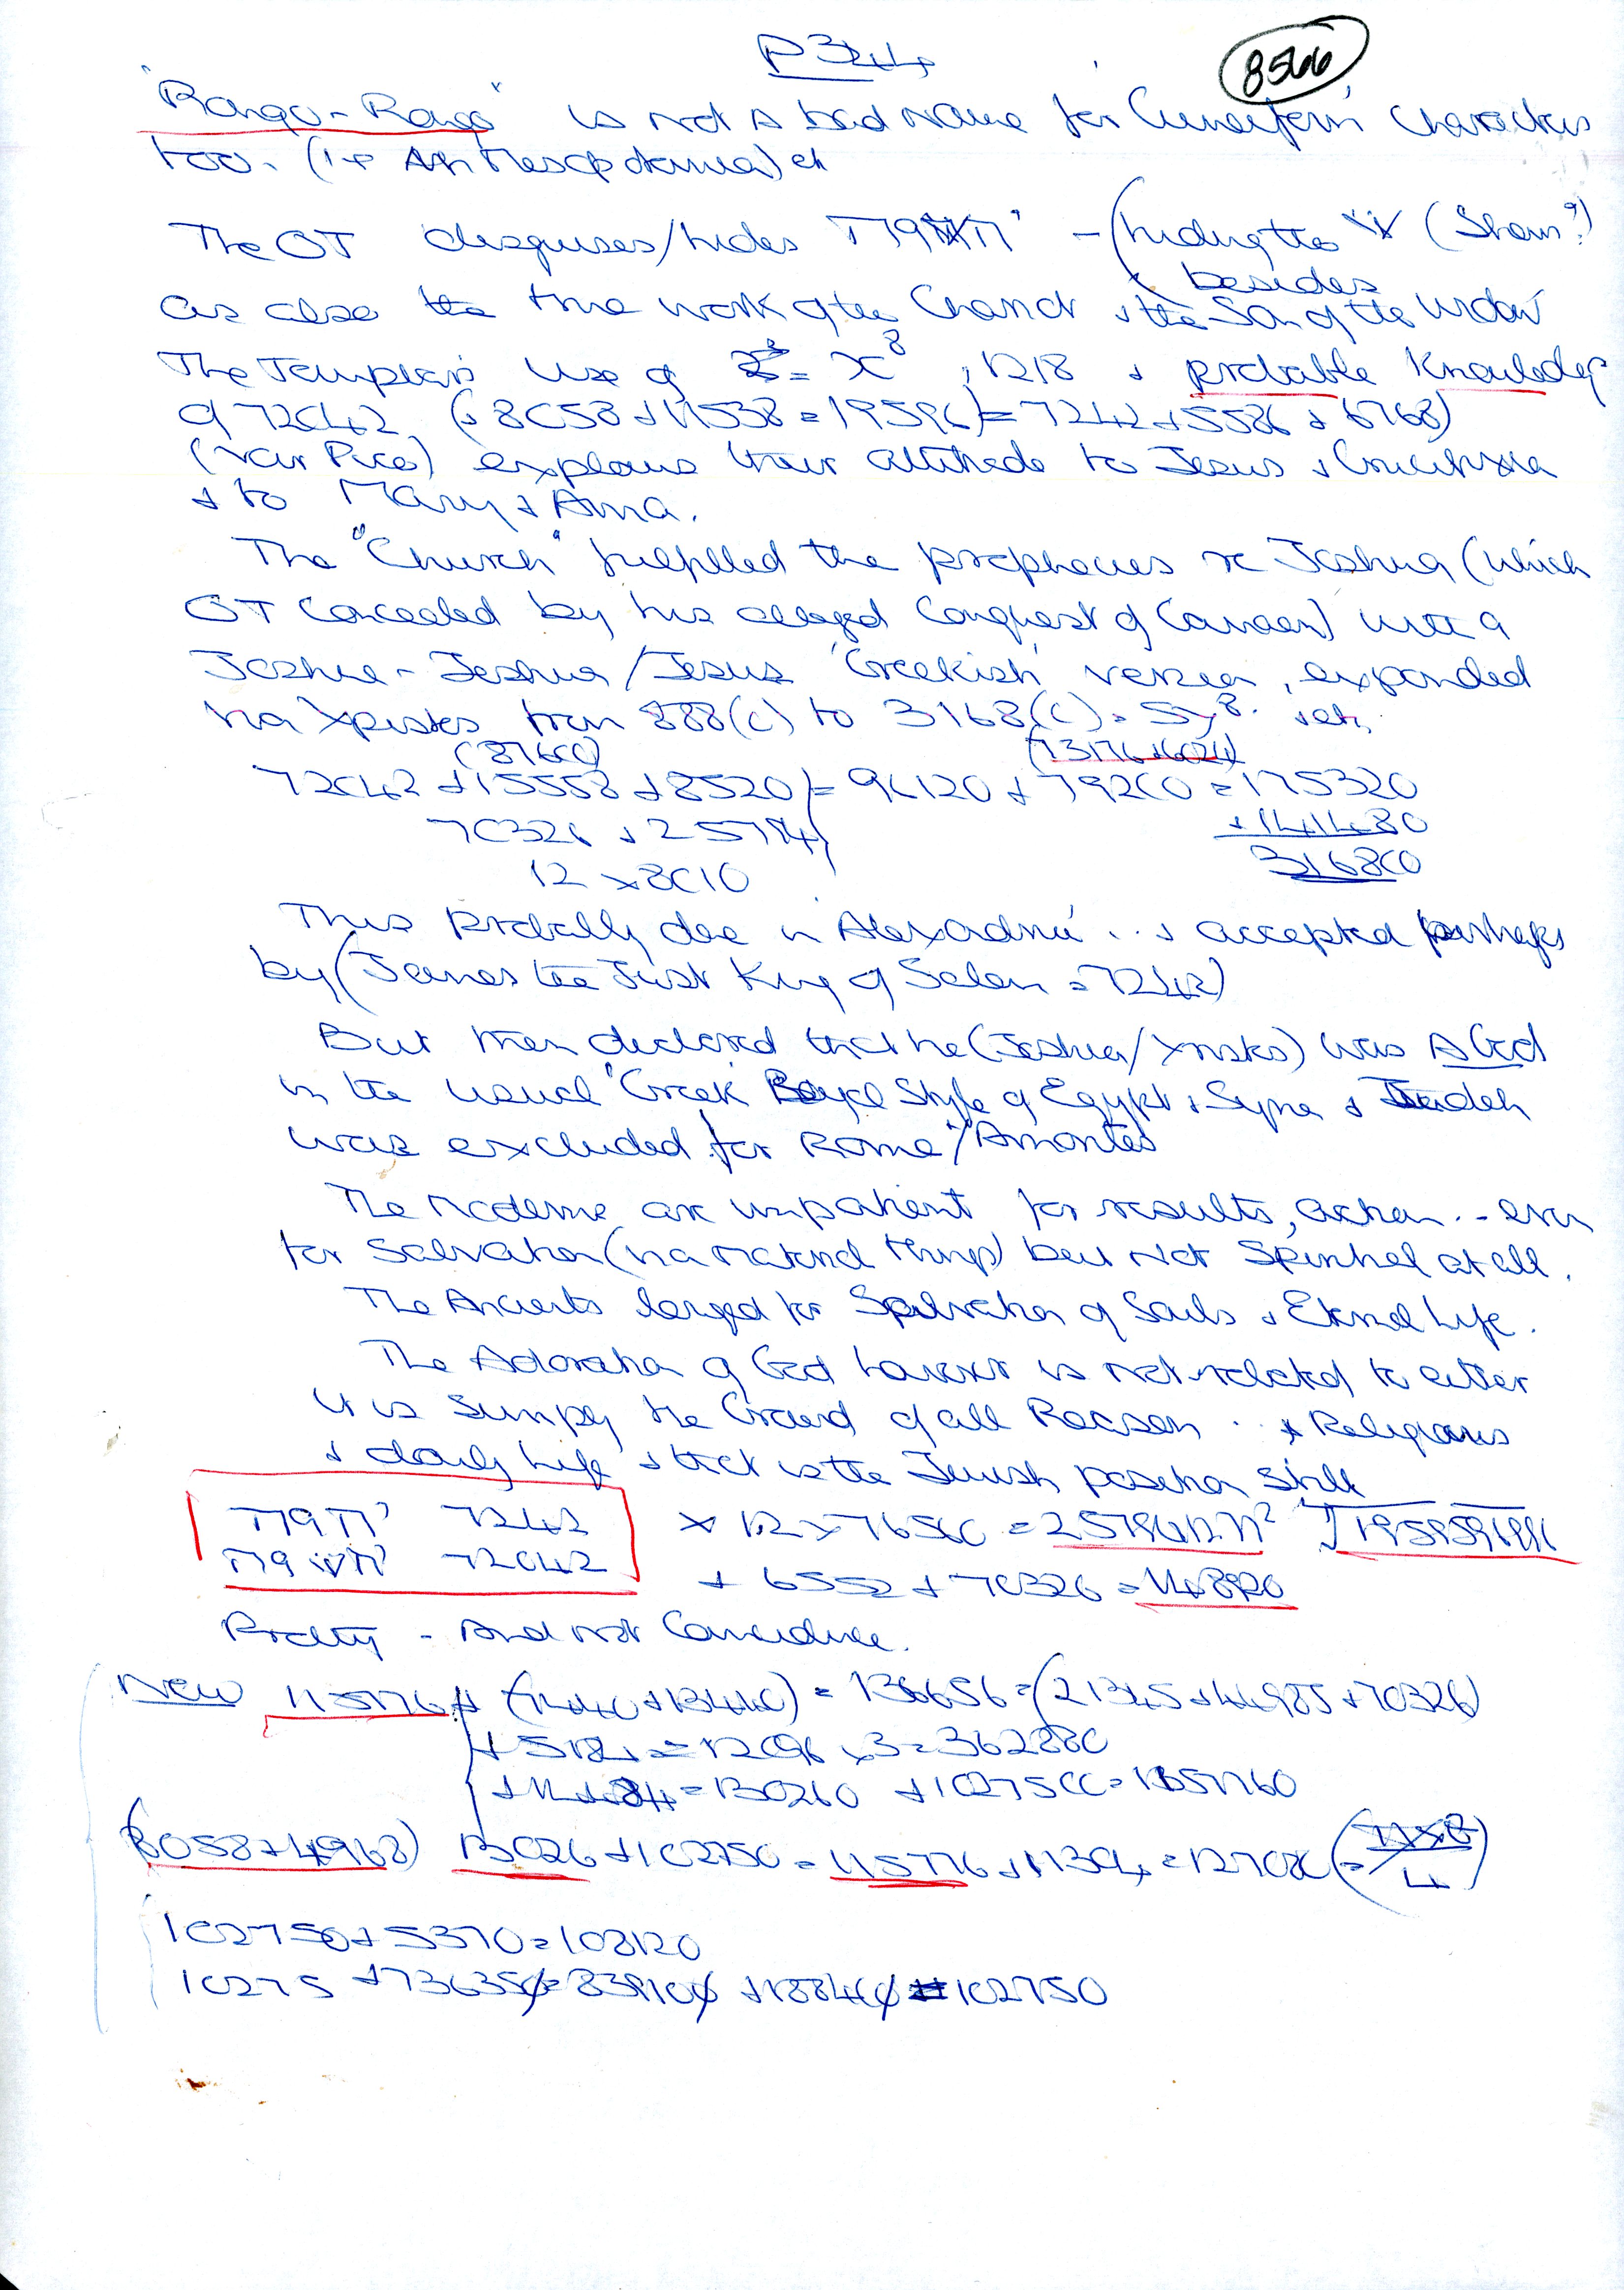 P344
8566
"Rongo-Rongo" is not a bad name for 'Cuneiform' characters
too. (ie in Mesopotamia) etc
The OT disguises/hides - (hiding the (Sham?)
besides
as also the true work of the Chariot & the Son of the Widow
The Templars use of = x⁸, 1218 & probable knowledge
of 72042 (& 8058 + 11538 = 19596) = 7242 + 5586 + 6768)
explains their attitude to Jesus & Crucifixion
& to Mary & Anna.
The "Church" fulfilled the prophecies re Joshua (which
OT concealed by his alleged Conquest of Canaan) with a
Joshua - Jeshua/Jesus 'Greekish' version, expanded
via Xpistos from 888(c) to 3168(c) = etc.
(87600) (73176+6024)
72042 + 15558 + 8520) = 96120 + 79200 = 175320
70326 + 25794) + 141480
12 x 8010 316800
This probably done in Alexandria .. & accepted perhaps
by (James the Just King of Salem = 7242)
But then declared that he (Joshua/Xristos) was a God
in the usual "Greek Royal Style of Egypt & Syria & Judah
was excluded for Rome"/Amorites
The Moderns are impatient for results, action... even
for Salvation (via material things) but not Spiritual at all.
The Ancients longed for Salvation of Souls & Eternal Life.
The Adoration of God however is not related to either
it is simply the Ground of all Reason .. & Religions
& daily life & that is the Jewish position still
7242 x 12 x 7656 = 25796
72042 + 6552 + 70326 = 148920
Pretty - And not Coincidence.
New 115776 + (7440 + 13440) = 136656 = (21345 + 44985 + 70326)
+ 5184 = 12096 x 3 = 362880
+ 14484 = 130260 + 1027500 = 1157760
(8058 + 4968) 13026 + 102750 = 115776 + 11304 = 127080
102750 + 5370 = 108120
10275 + 73635 = 83910 + 18840 = 102750